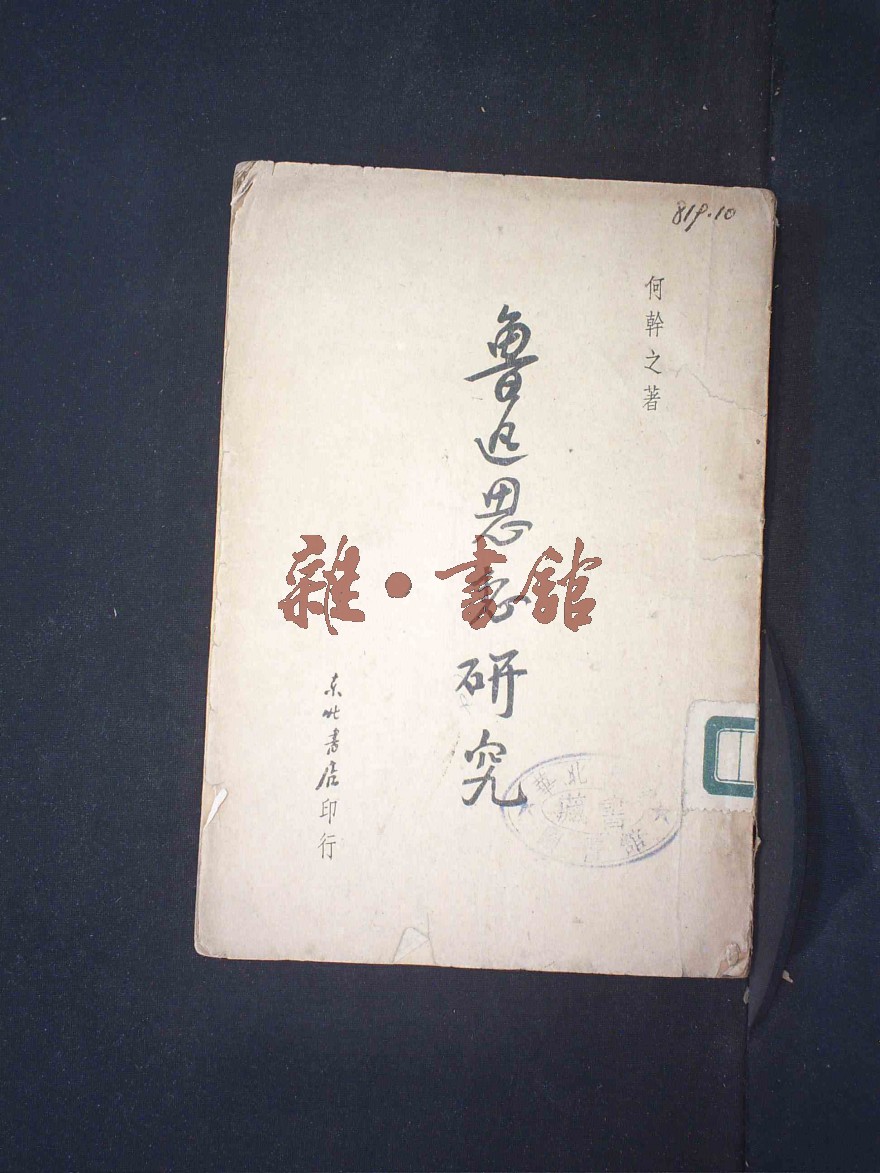 819.10
何幹之著
魯迅思想研究
东北書店印行
雜·書館
華北
藏書
館